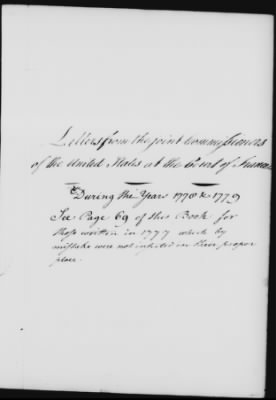 Letters from the joint Commissioners
of the United States at the Court of France
During the Years 1778 & 1779
See Page 69 of this Book for
those written in 1777 which by
mistake were not inserted in their proper
place.